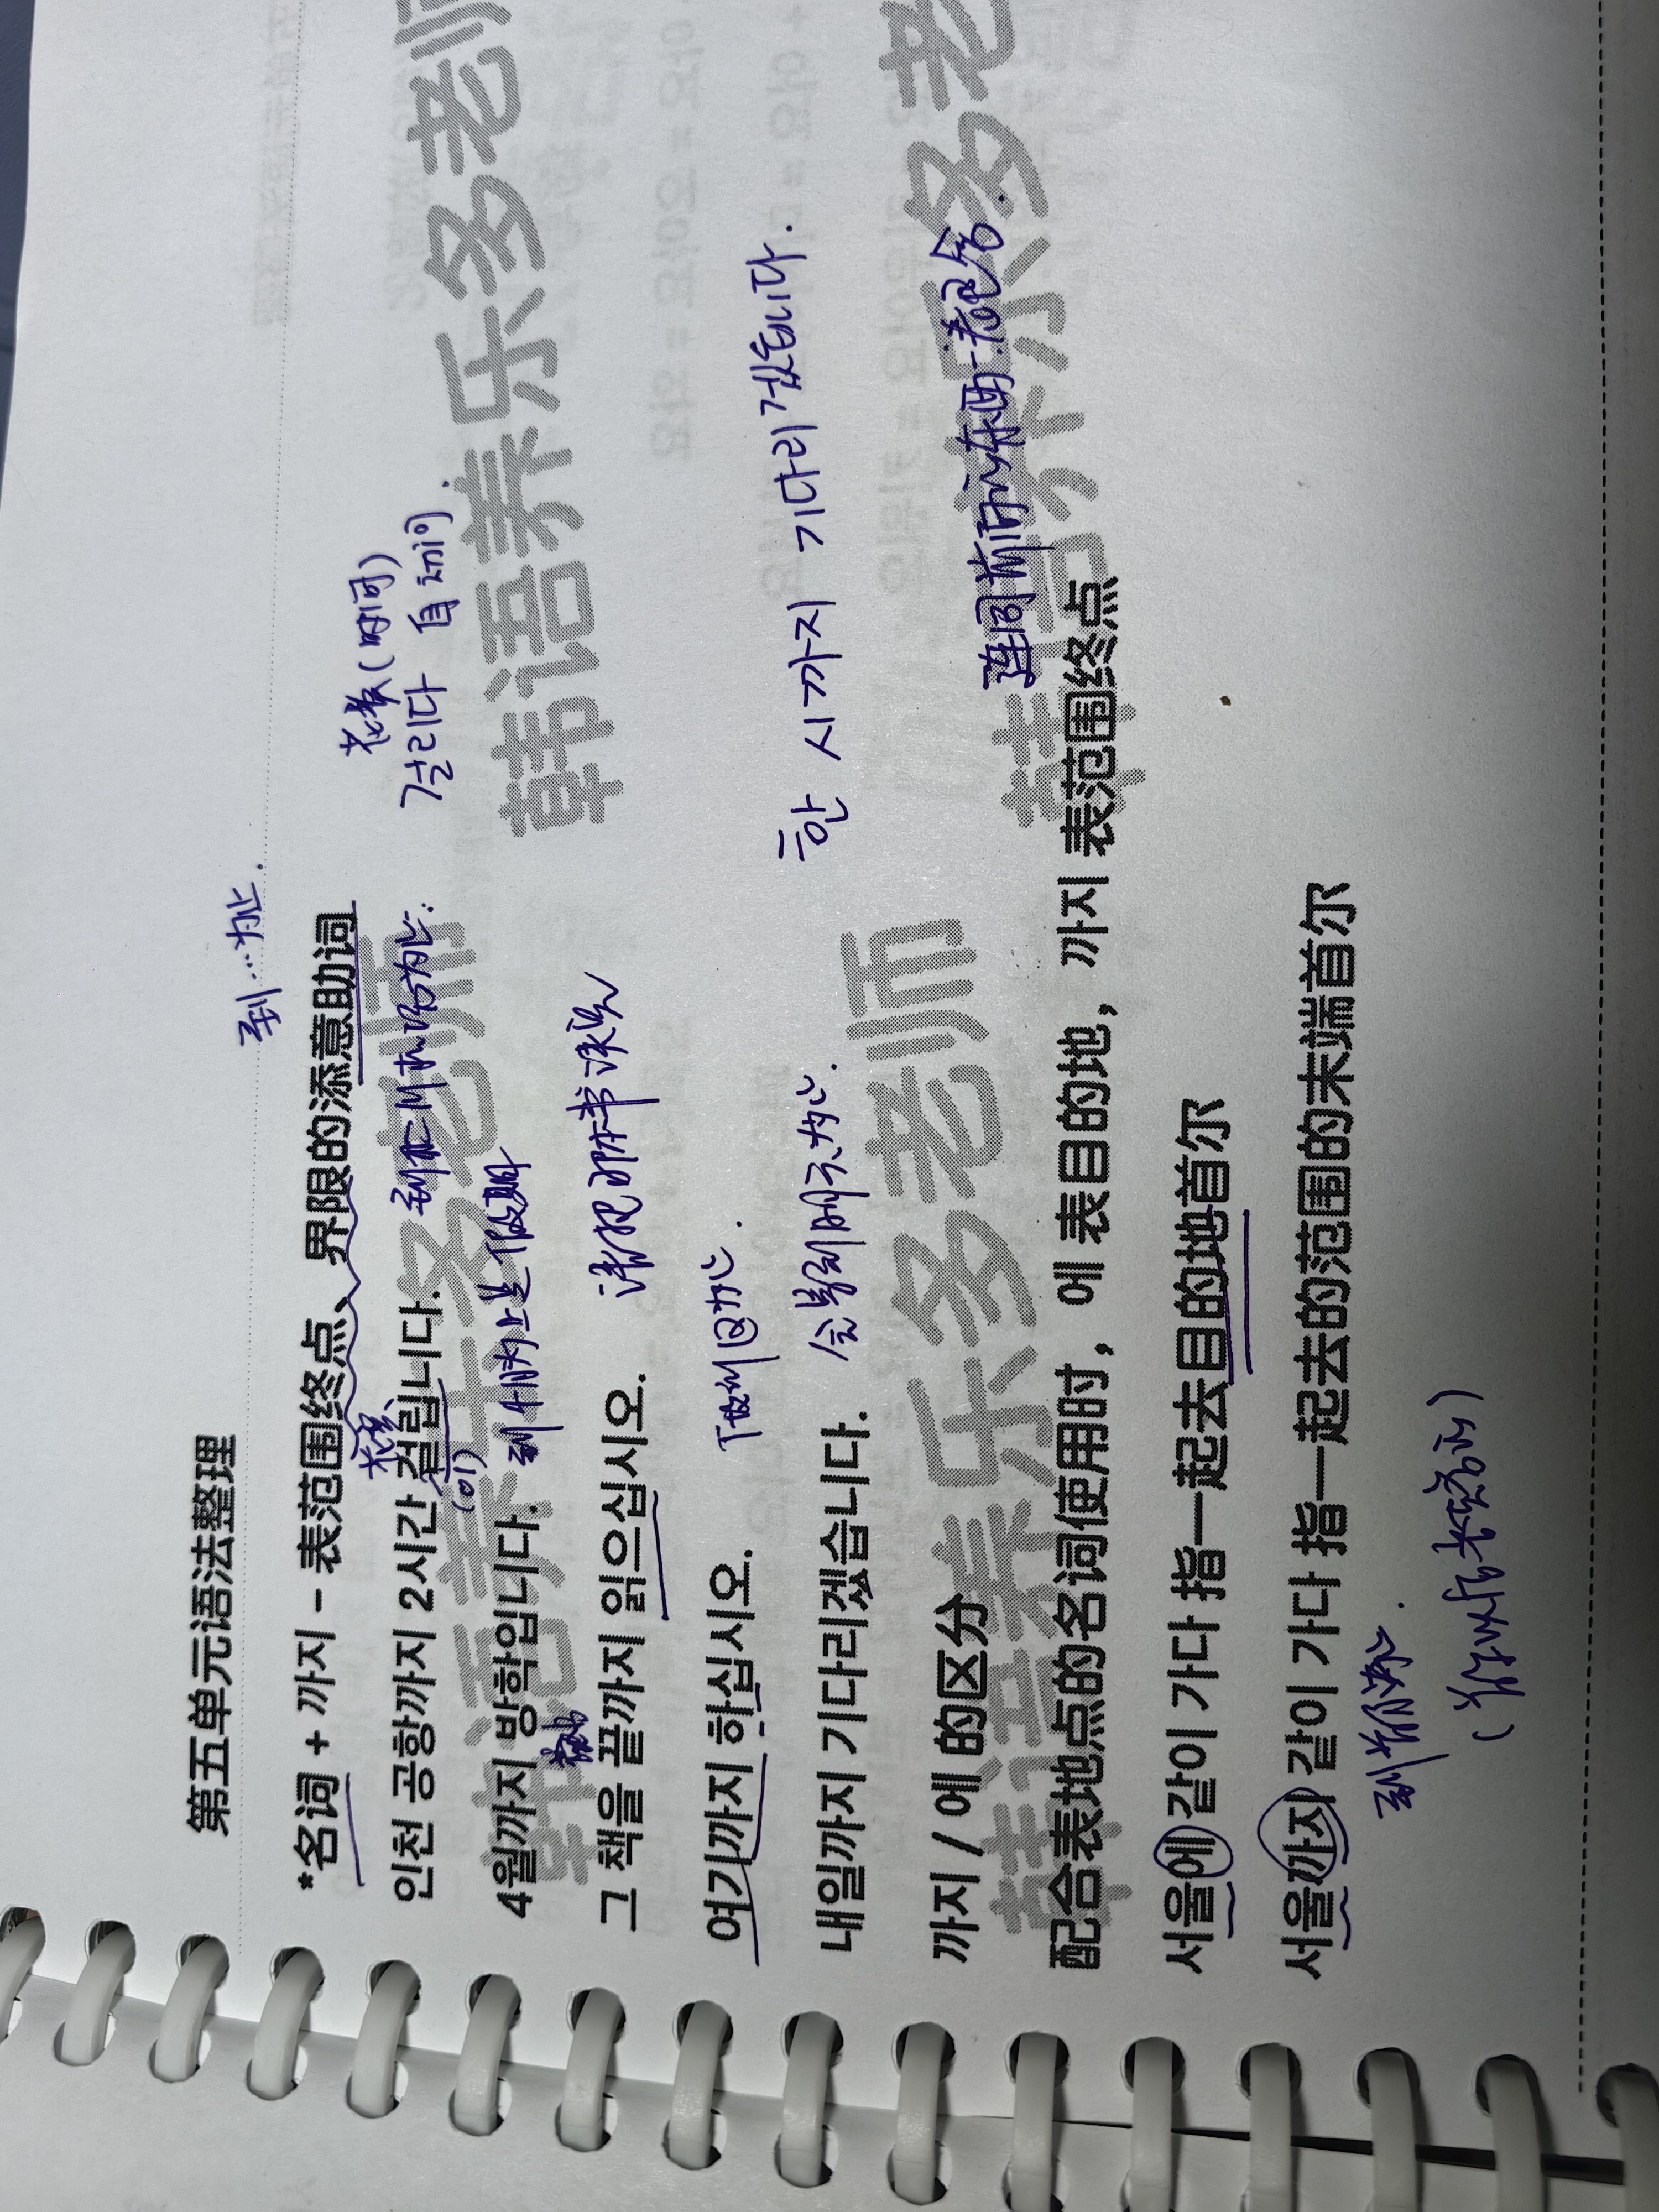 第五单元语法整理
到…为止.
*名词 + 까지 – 表范围终点、界限的添意助词
花费(时间)
걸리다 自动词.
花费
인천 공항까지 2시간 걸립니다. 到仁川机场为止.
(이)
4월까지 방학입니다. 到4月为止是假期
그 책을 끝까지 읽으십시오. 请把那本书读完
여기까지 하십시오. 做到这为止.
내일까지 기다리겠습니다. 会等到明天为止.
한 시까지 기다리겠습니다.
까지 / 에 的区分
连同前面的东西一起包含.
配合表地点的名词使用时，에 表目的地，까지 表范围终点
서울에 같이 가다 指一起去目的地首尔
서울까지 같이 가다 指一起去的范围的末端首尔
到首尔.